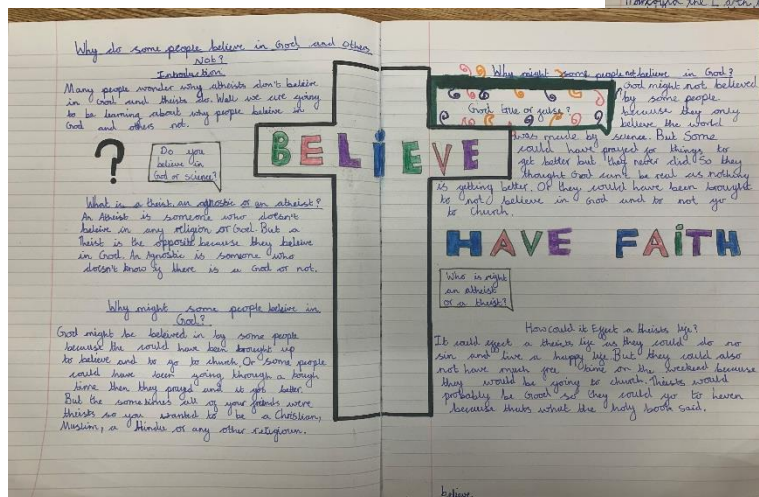 Why do some people believe in God and others
Not?
Introduction
Many people wonder why atheists don't beleive
in God and theists do. Well we are going
to be learning about why people beleive in
God and others not.
?
Do you
believe in
God or science?
BELiEVE
What is a theist, an agnostic or an atheist?
An Atheist is someone who doesn't
beleive in any religion or God. But a
Theist is the opposite because they beleive
in God. An Agnostic is someone who
doesn't know if there is a God or not.
Why might some people beleive in
God?
God might be beleived in by some people
because the could have been brought up
to believe and to go to church. Or some people
could have been going through a tough
time then they prayed and it got better.
But the sometimes all of your friends were
theists so you wanted to be a Christian,
Muslim, a Hindu or any other religioun.
Why might some people not believe in God?
God true or false?
God might not believed
by some people
because they only
believe the world
was made by science. But Some
could have prayed for things to
get better but they never did. So they
thought God cant be real as nothing
is getting better. Or they could have been brought
to not believe in God and to not go
to church.
HAVE FAiTH
Who is right
an atheist
or a theist?
How could it Effect a theists life?
It could effect a theists life as they could do no
sin and live a happy life. But they could also
not have much free time on the weekend because
they would be going to church. Theists would
probably be Good so they could go to heven
because thats what the holy book said.
believe.